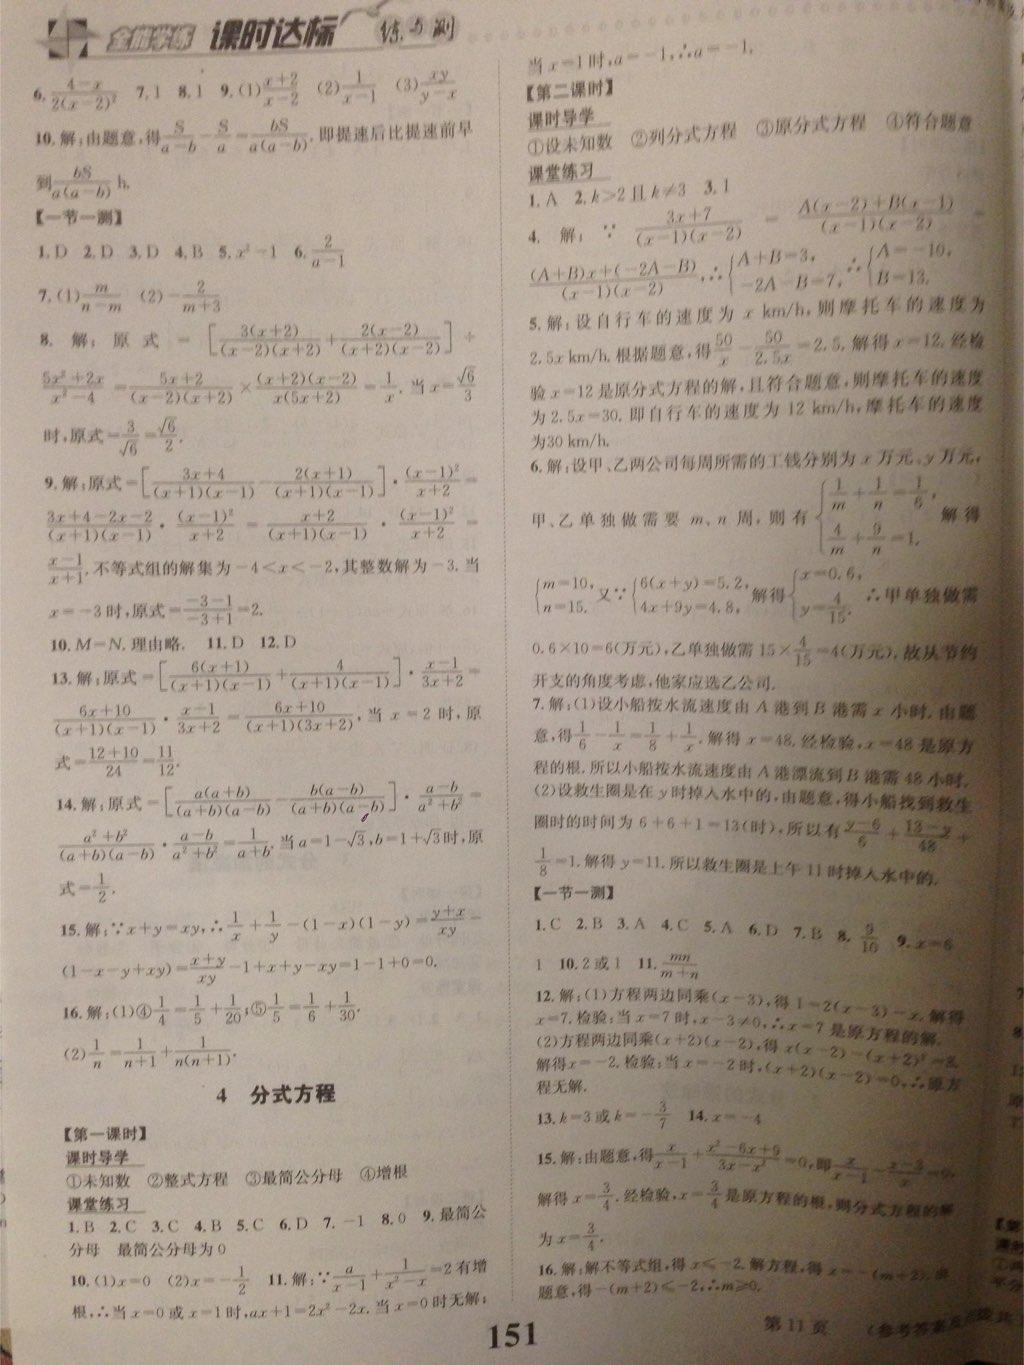 全能学练 课时达标 练与测
6. (4-x)/(2(x-2)²) 7. 1 8. 1 9. (1) (x+2)/(x-2) (2) 1/(x-1) (3) xy/(y-x)
10. 解:由题意,得 S/(a-b) - S/a = bS/(a(a-b)). 即提速后比提速前早
到 bS/(a(a-b)) h.
【一节一测】
1. D 2. D 3. D 4. B 5. x²-1 6. 2/(a-1)
7. (1) m/(n-m) (2) -2/(m+3)
8. 解:原式=[3(x+2)/((x-2)(x+2)) + 2(x-2)/((x+2)(x-2))] ÷
(5x²+2x)/(x²-4) = (5x+2)/((x-2)(x+2)) × (x+2)(x-2)/(x(5x+2)) = 1/x. 当 x=√6/3
时,原式=3/√6=√6/2.
9. 解:原式=[(3x+4)/((x+1)(x-1)) - 2(x+1)/((x+1)(x-1))]·(x-1)²/(x+2)=
(3x+4-2x-2)/((x+1)(x-1))·(x-1)²/(x+2) = (x+2)/((x+1)(x-1))·(x-1)²/(x+2) =
(x-1)/(x+1). 不等式组的解集为-4<x<-2,其整数解为-3. 当
x=-3时,原式=(-3-1)/(-3+1)=2.
10. M=N. 理由略. 11. D 12. D
13. 解:原式=[6(x+1)/((x+1)(x-1)) + 4/((x+1)(x-1))]·(x-1)/(3x+2)=
(6x+10)/((x+1)(x-1))·(x-1)/(3x+2)=(6x+10)/((x+1)(3x+2)),当 x=2 时,原
式=(12+10)/24=11/12.
14. 解:原式=[a(a+b)/((a+b)(a-b)) - b(a-b)/((a+b)(a-b))]·(a-b)/(a²+b²)=
(a²+b²)/((a+b)(a-b))·(a-b)/(a²+b²)=1/(a+b). 当a=1-√3,b=1+√3时,原
式=1/2.
15. 解:∵x+y=xy,∴1/x+1/y-(1-x)(1-y)=(y+x)/xy-
(1-x-y+xy)=(x+y)/xy-1+x+y-xy=1-1+0=0.
16. 解:(1)④1/4=1/5+1/20;⑤1/5=1/6+1/30.
(2)1/n=1/(n+1)+1/(n(n+1)).
4 分式方程
【第一课时】
课时导学
①未知数 ②整式方程 ③最简公分母 ④增根
课堂练习
1. B 2. C 3. C 4. B 5. C 6. D 7. -1 8. 0 9. 最简公
分母 最简公分母为0
10. (1)x=0 (2)x=-1/2 11. 解:∵a/(x-1)+1/(x²-x)=2有增
根,∴当x=0或x=1时,ax+1=2x²-2x. 当x=0时无解;
当x=1时,a=-1,∴a=-1.
【第二课时】
课时导学
①设未知数 ②列分式方程 ③原分式方程 ④符合题意
课堂练习
1. A 2. k>2且k≠3 3. 1
4. 解:∵(3x+7)/((x-1)(x-2))=(A(x-2)+B(x-1))/((x-1)(x-2))=
((A+B)x+(-2A-B))/((x-1)(x-2)),∴{A+B=3, -2A-B=7, ∴{A=-10, B=13.
5. 解:设自行车的速度为 x km/h,则摩托车的速度为
2.5x km/h. 根据题意,得50/x-50/2.5x=2.5. 解得x=12. 经检
验x=12是原分式方程的解,且符合题意,则摩托车的速度
为2.5x=30. 即自行车的速度为 12 km/h,摩托车的速度
为30 km/h.
6. 解:设甲、乙两公司每周所需的工钱分别为 x 万元、y万元,
甲、乙单独做需要 m、n 周,则有{1/m+1/n=1/6, 4/m+9/n=1. 解得
{m=10, n=15. 又∵{6(x+y)=5.2, 4x+9y=4.8, 解得{x=0.6, y=4/15. ∴甲单独做需
0.6×10=6(万元),乙单独做需15×4/15=4(万元),故从节约
开支的角度考虑,他家应选乙公司.
7. 解:(1)设小船按水流速度由 A 港到B 港需 x 小时. 由题
意,得1/6-1/x=1/8+1/x. 解得 x=48. 经检验,x=48 是原方
程的根. 所以小船按水流速度由A港漂流到B港需48小时.
(2)设救生圈是在y时掉入水中的,由题意,得小船找到救生
圈时的时间为6+6+1=13(时),所以有(y-6)/6+(13-y)/48+
1/8=1. 解得y=11. 所以救生圈是上午11时掉入水中的.
【一节一测】
1. C 2. B 3. A 4. C 5. A 6. D 7. B 8. 9/10 9. x=6
1 10. 2或1 11. mn/(m+n)
12. 解:(1)方程两边同乘(x-3),得 1=2(x-3)-x. 解得
x=7. 检验:当x=7时,x-3≠0,∴x=7是原方程的解.
(2)方程两边同乘(x+2)(x-2),得x(x-2)-(x+2)²=8.
解得x=-2. 检验:当x=-2时,(x+2)(x-2)=0,∴原方
程无解.
13. k=3或k=-3/7 14. x=-4
15. 解:由题意,得x/(x-1)+(x²-6x+9)/(3x-x²)=0,即x/(x-1)-(x-3)/x=0.
解得x=3/4. 经检验,x=3/4是原方程的根,则分式方程的解
为x=3/4.
16. 解:解不等式组,得x≤-2. 解方程,得x=-(m+2). 由
题意,得-(m+2)≤-2,∴m≥0.
151
第11页